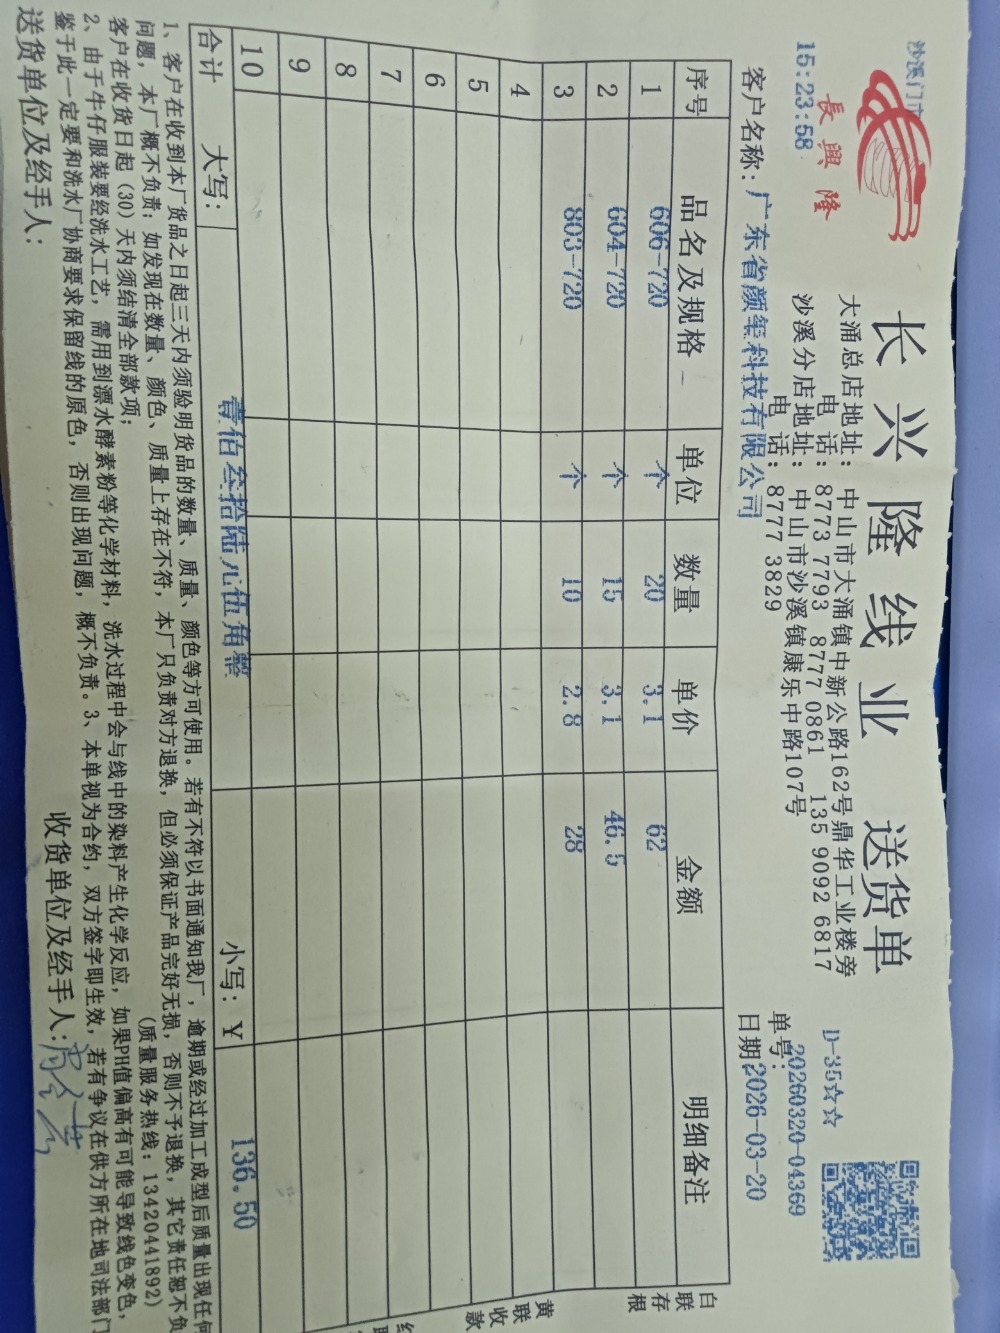 沙溪门市
15:23:58
長興隆
长兴隆线业 送货单
大涌总店地址：中山市大涌镇中新公路162号鼎华工业楼旁
电 话：8773 7793 8777 0861 135 9092 6817
沙溪分店地址：中山市沙溪镇康乐中路107号
电 话：8777 3829
D-35☆☆
单号：20260320-04369
客户名称：广东省颜笙科技有限公司
日期：2026-03-20
序号 品名及规格 单位 数量 单价 金额 明细备注
1 606-720 个 20 3.1 62
2 604-720 个 15 3.1 46.5
3 803-720 个 10 2.8 28
4
5
6
7
8
9
10
合计 大写： 壹佰叁拾陆元伍角整 小写：¥ 136.50
白联存根
黄联收款
1、客户在收到本厂货品之日起三天内须验明货品的数量、质量、颜色等方可使用。若有不符以书面通知我厂，逾期或经过加工成型后质量出现任何
问题，本厂概不负责；如发现在数量、颜色、质量上存在不符，本厂只负责对方退换，但必须保证产品完好无损，否则不予退换，其它责任恕不负
客户在收货日起（30）天内须结清全部款项； （质量服务热线：13420441892）
2、由于牛仔服装要经洗水工艺，需用到漂水酵素粉等化学材料，洗水过程中会与线中的染料产生化学反应，如果PH值偏高有可能导致线色变色，
鉴于此一定要和洗水厂协商要求保留线的原色，否则出现问题，概不负责。3、本单视为合约，双方签字即生效，若有争议在供方所在地司法部门
送货单位及经手人： 收货单位及经手人：